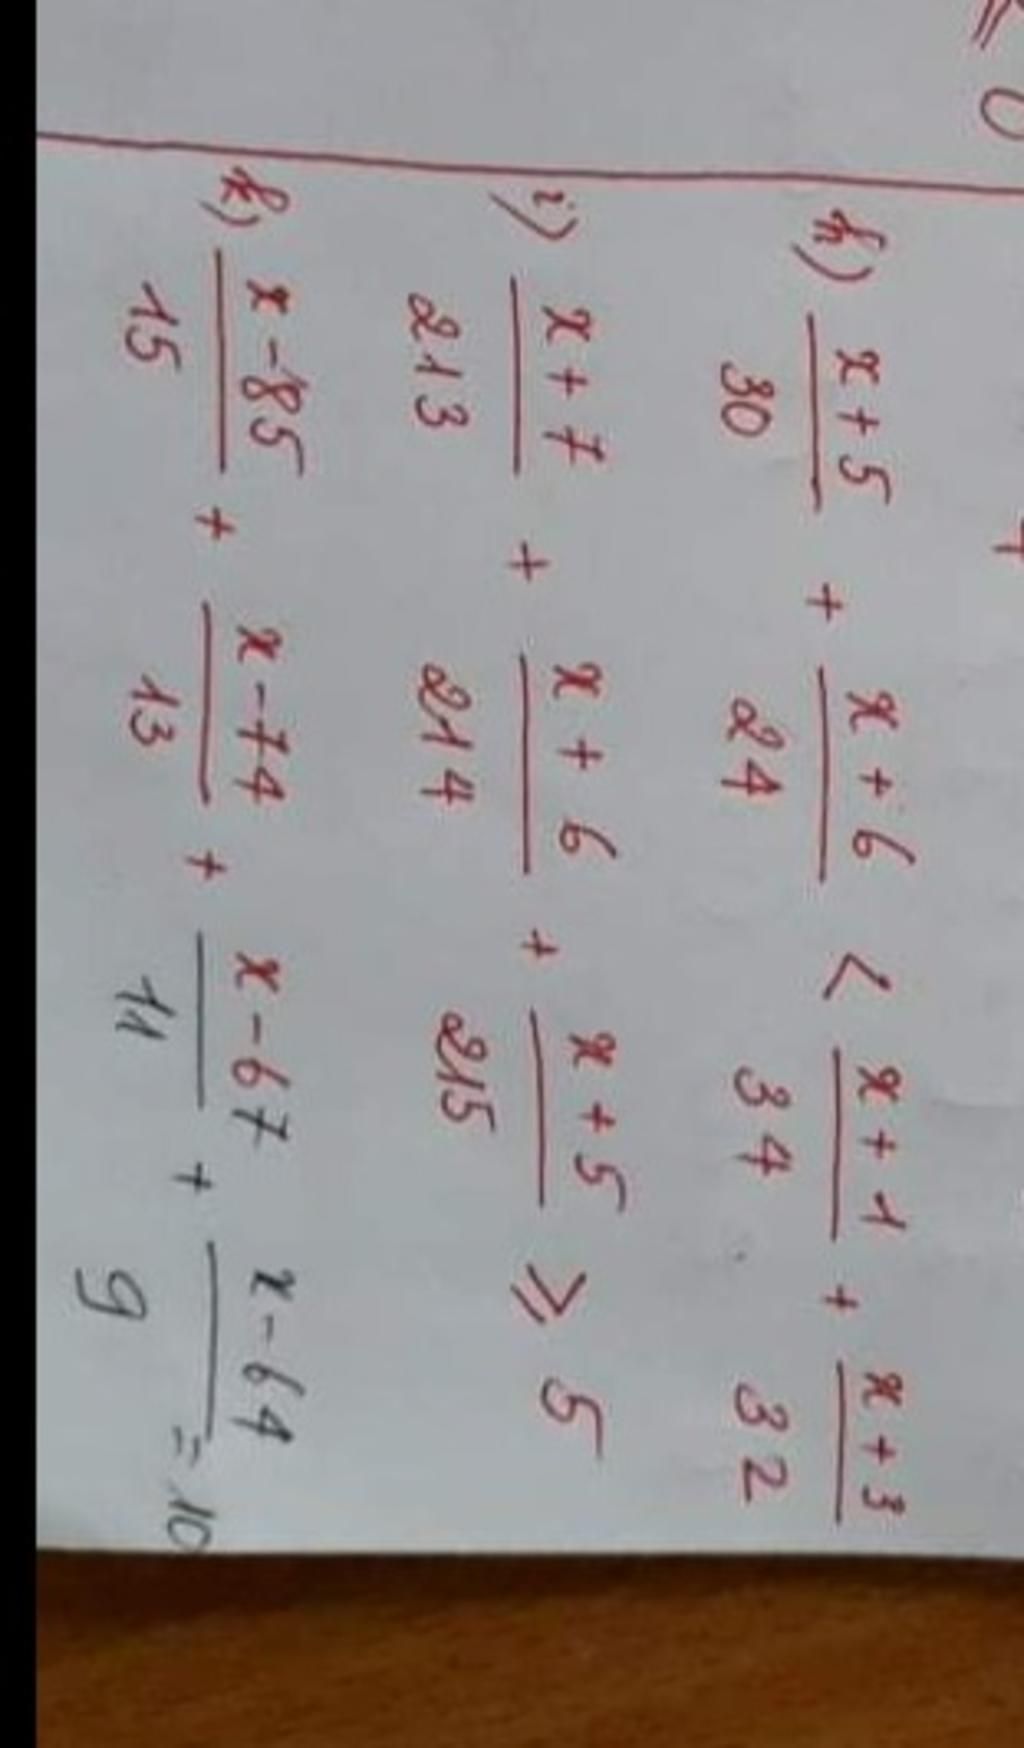 ≤ 0
h) x+5/30 + x+6/24 < x+1/34 + x+3/32
i) x+7/213 + x+6/214 + x+5/215 ≥ 5
k) x-85/15 + x-74/13 + x-67/11 + x-64/9 = 10